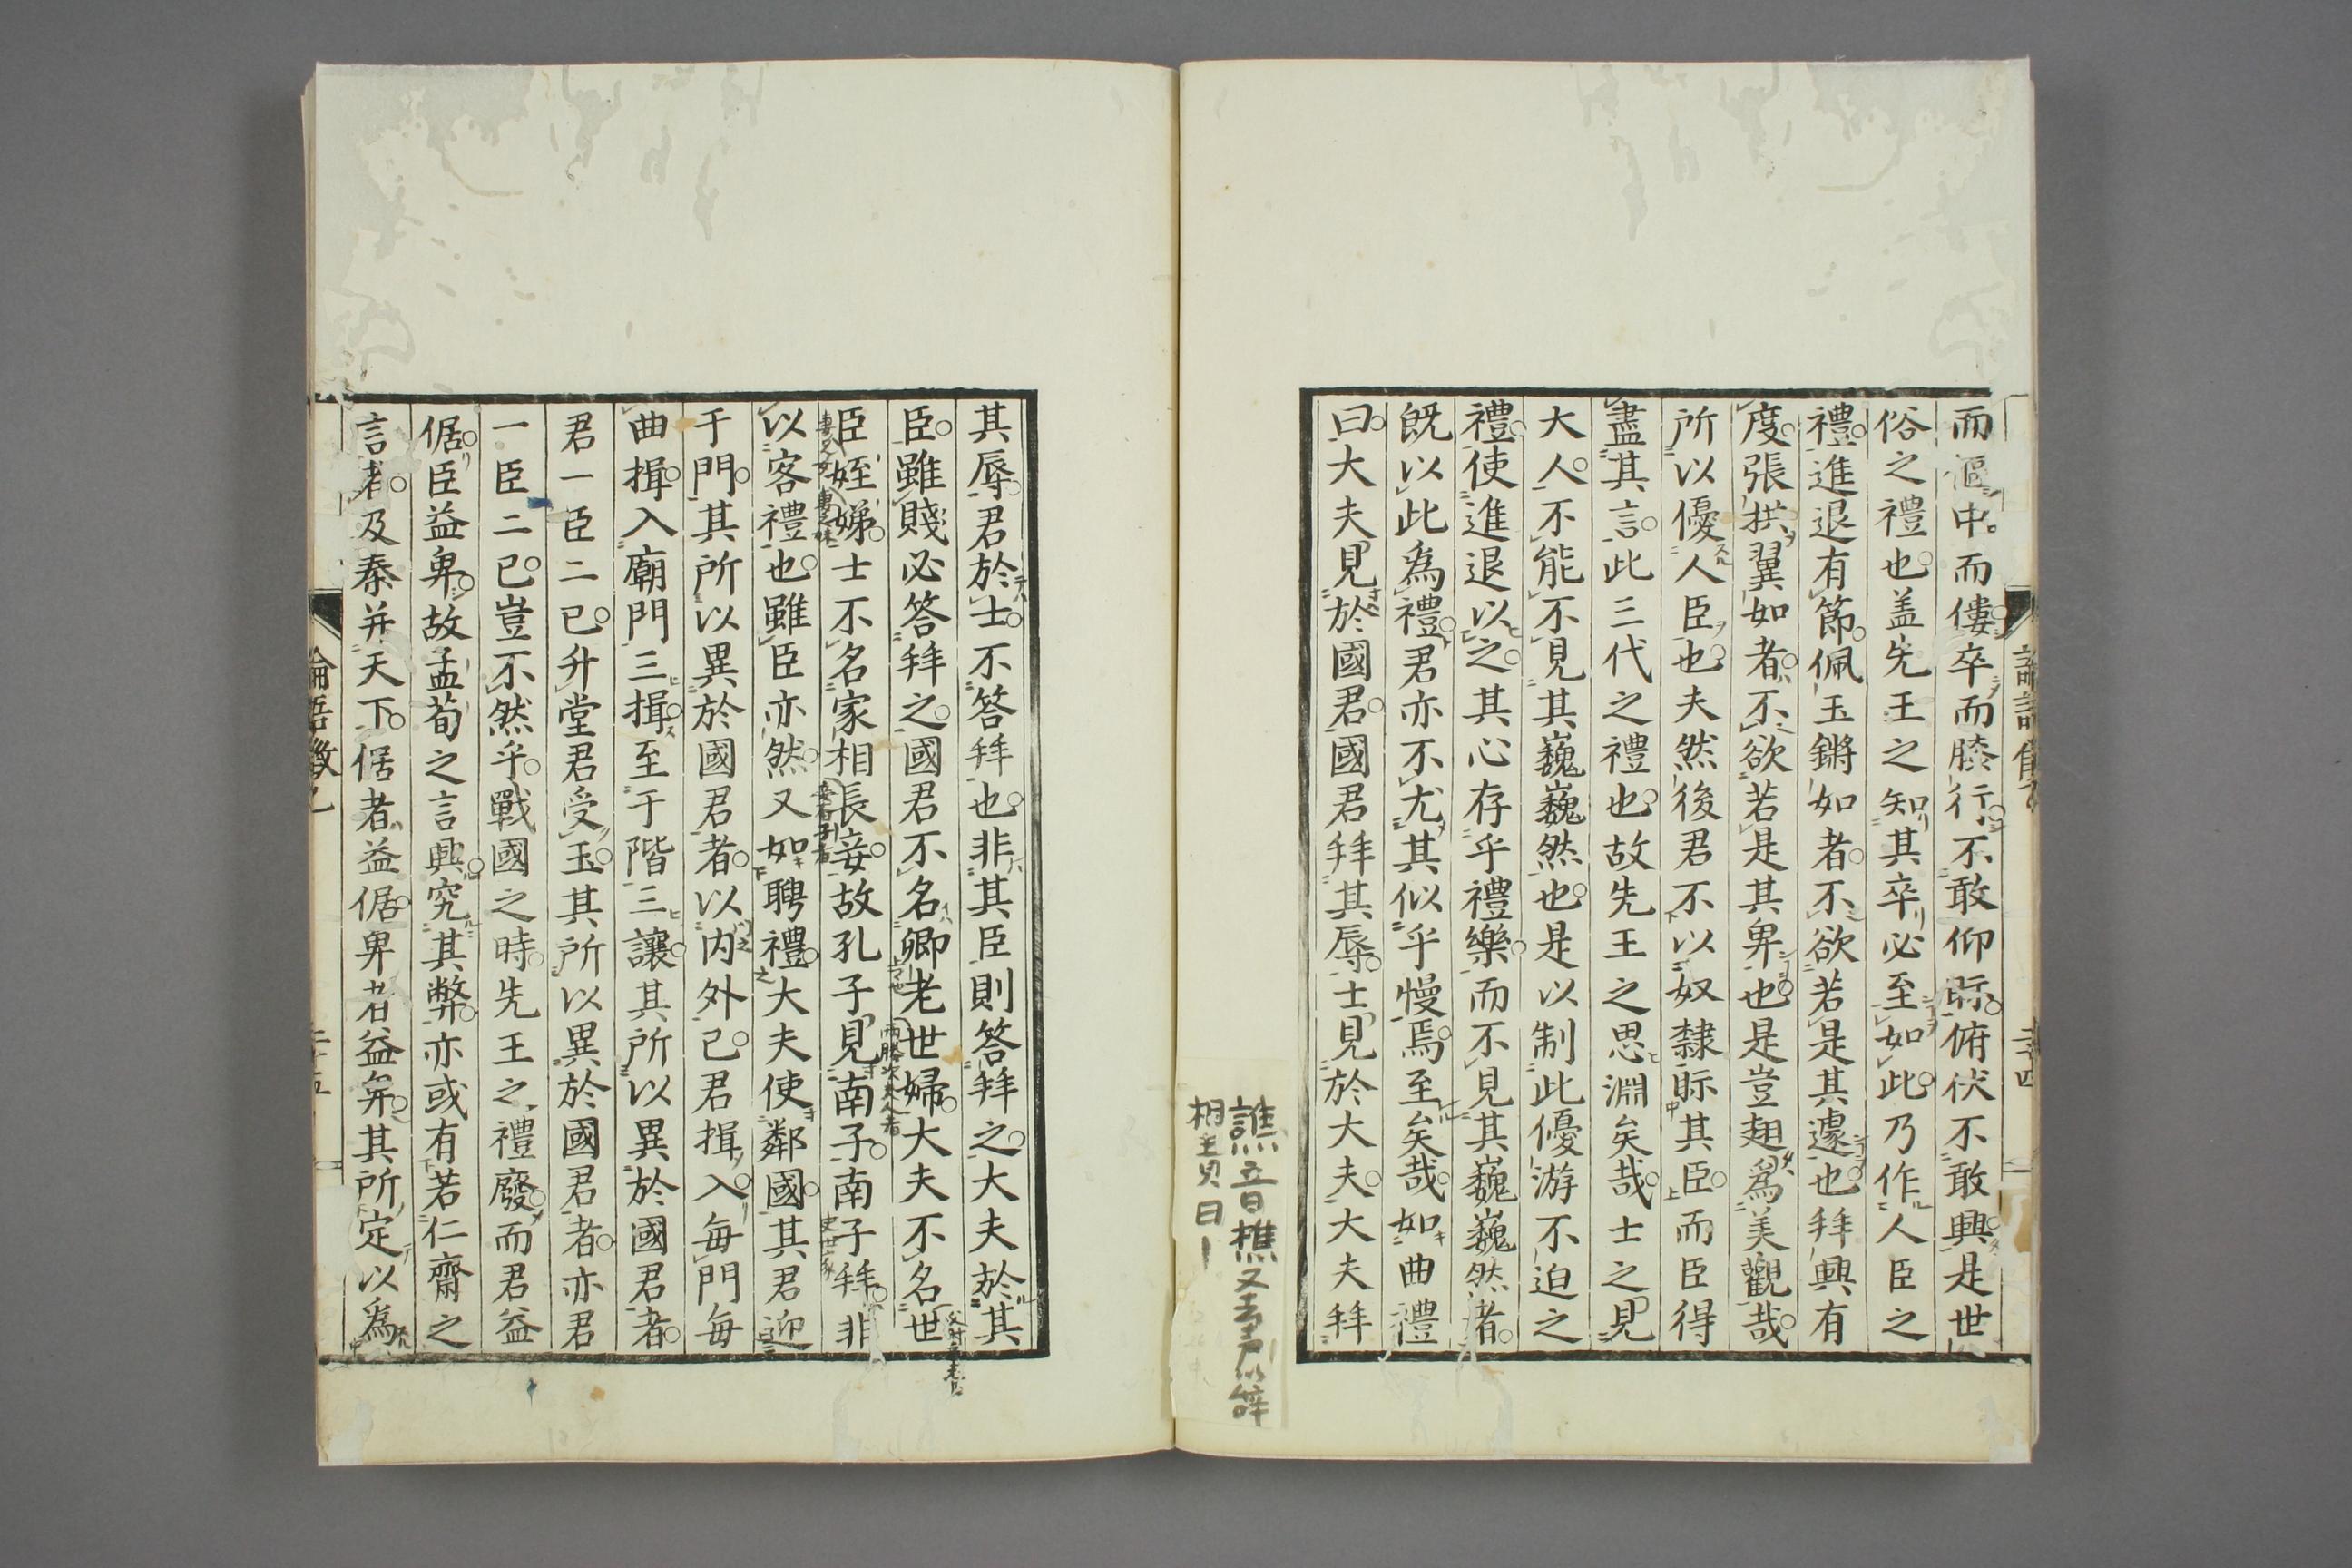 而傴中而僂卒而膝行不敢仰眎俯伏不敢興是世
俗之禮也盖先王之知其卒必至如此乃作人臣之
禮進退有節佩玉鏘如者不欲若是其遽也拜興有
度張拱翼如者不欲若是其卑也是豈翅爲美觀哉
所以優人臣也夫然後君不以奴隸眎其臣而臣得
盡其言此三代之禮也故先王之思淵矣哉士之見
大人不能不見其巍巍然也是以制此優游不迫之
禮使進退以之其心存乎禮樂而不見其巍巍然者
既以此爲禮君亦不尤其似乎慢焉至矣哉如曲禮
曰大夫見於國君國君拜其辱士見於大夫大夫拜
其辱君於士不答拜也非其臣則答拜之大夫於其
臣雖賤必答拜之國君不名卿老世婦大夫不名世
臣姪娣士不名家相長妾故孔子見南子南子拜非
以客禮也雖臣亦然又如聘禮大夫使鄰國其君迎
于門其所以異於國君者以内外已君揖入每門每
曲揖入廟門三揖至于階三讓其所以異於國君者
君一臣二已升堂君受玉其所以異於國君者亦君
一臣二已豈不然乎戰國之時先王之禮廢而君益
倨臣益卑故孟荀之言興究其弊亦或有若仁齋之
言者及秦并天下倨者益倨卑者益卑其所定以爲